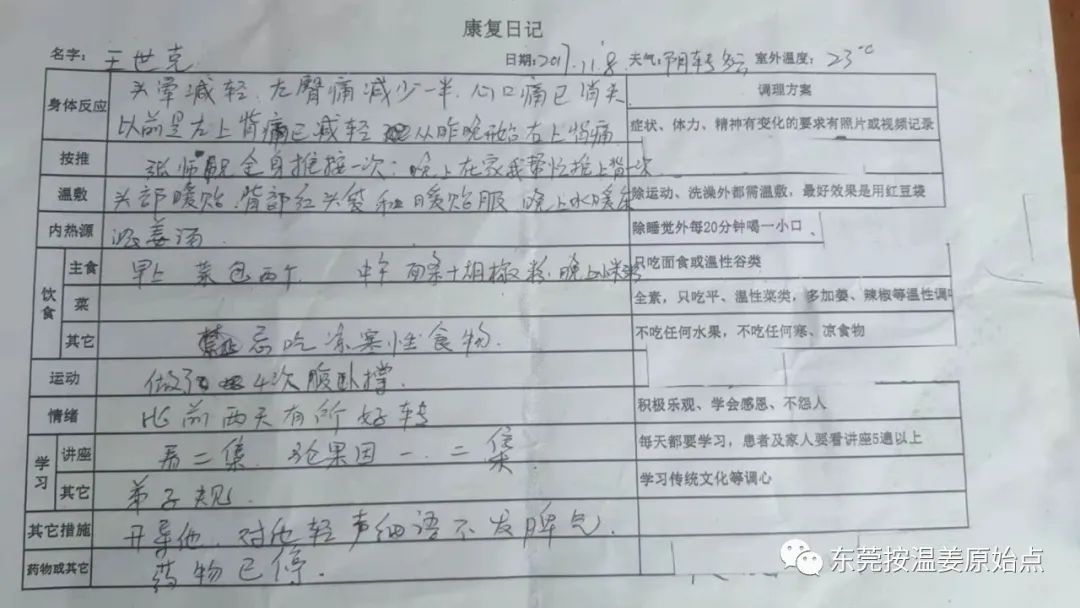 康复日记
名字： 王世克 日期：2017.11.8 天气：阴转多云 室外温度： 23℃
身体反应 头晕减轻．左臀痛减少一半．心口痛已消失 调理方案
以前是左上背痛已减轻 从昨晚开始右上背痛 症状、体力、精神有变化的要求有照片或视频记录
按推 张师 全身推按一次；晚上在家我帮忙按上背一次
温敷 头部暖贴．背部红豆袋和暖贴服 晚上水暖 除运动、洗澡外都需温敷，最好效果是用红豆袋
内热源 姜汤． 除睡觉外每20分钟喝一小口
饮食 主食 早上 菜包两个 中午 面条＋胡椒粉．晚上小米粥 只吃面食或温性谷类
菜 全素，只吃平、温性菜类，多加姜、辣椒等温性调
其它 忌吃凉寒性食物． 不吃任何水果，不吃任何寒、凉食物
运动 做了 4次腹卧撑．
情绪 比前两天有所好转 积极乐观、学会感恩、不怨人
学习 讲座 第二集．论果因一．二集． 每天都要学习，患者及家人要看讲座5遍以上
其它 弟子规． 学习传统文化等调心
其它措施 开导他．对他轻声细语不发脾气．
药物或其它 药物已停．
东莞按温姜原始点